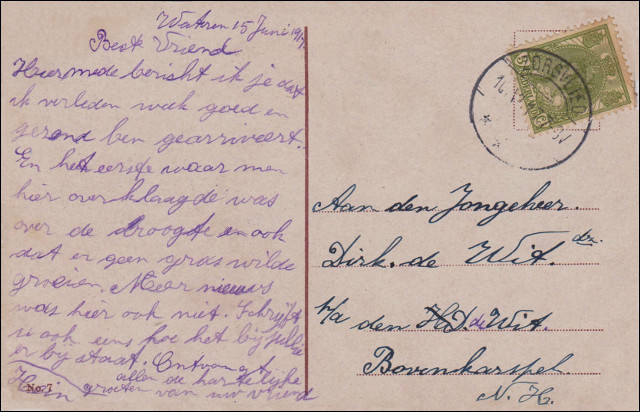 Watren 15 Juni 1917
Beste Vriend
Hiermede bericht ik je dat
ik verleden week goed en
gezond ben gearriveert.
En het eerste waar men
hier over klaagde was
over de droogte en ook
dat er geen gras wilde
groeien. Meer nieuws
was hier ook niet. Schrijft
u ook eens hoe het bij jullie
er bij staat. Ontvangt
allen de hartelijke
groeten van uw vriend
Hein
No. 7
Aan den Jongeheer
Dirk. de Wit. dz.
p/a den H.D. de Wit.
Bovenkarspel
N. H.